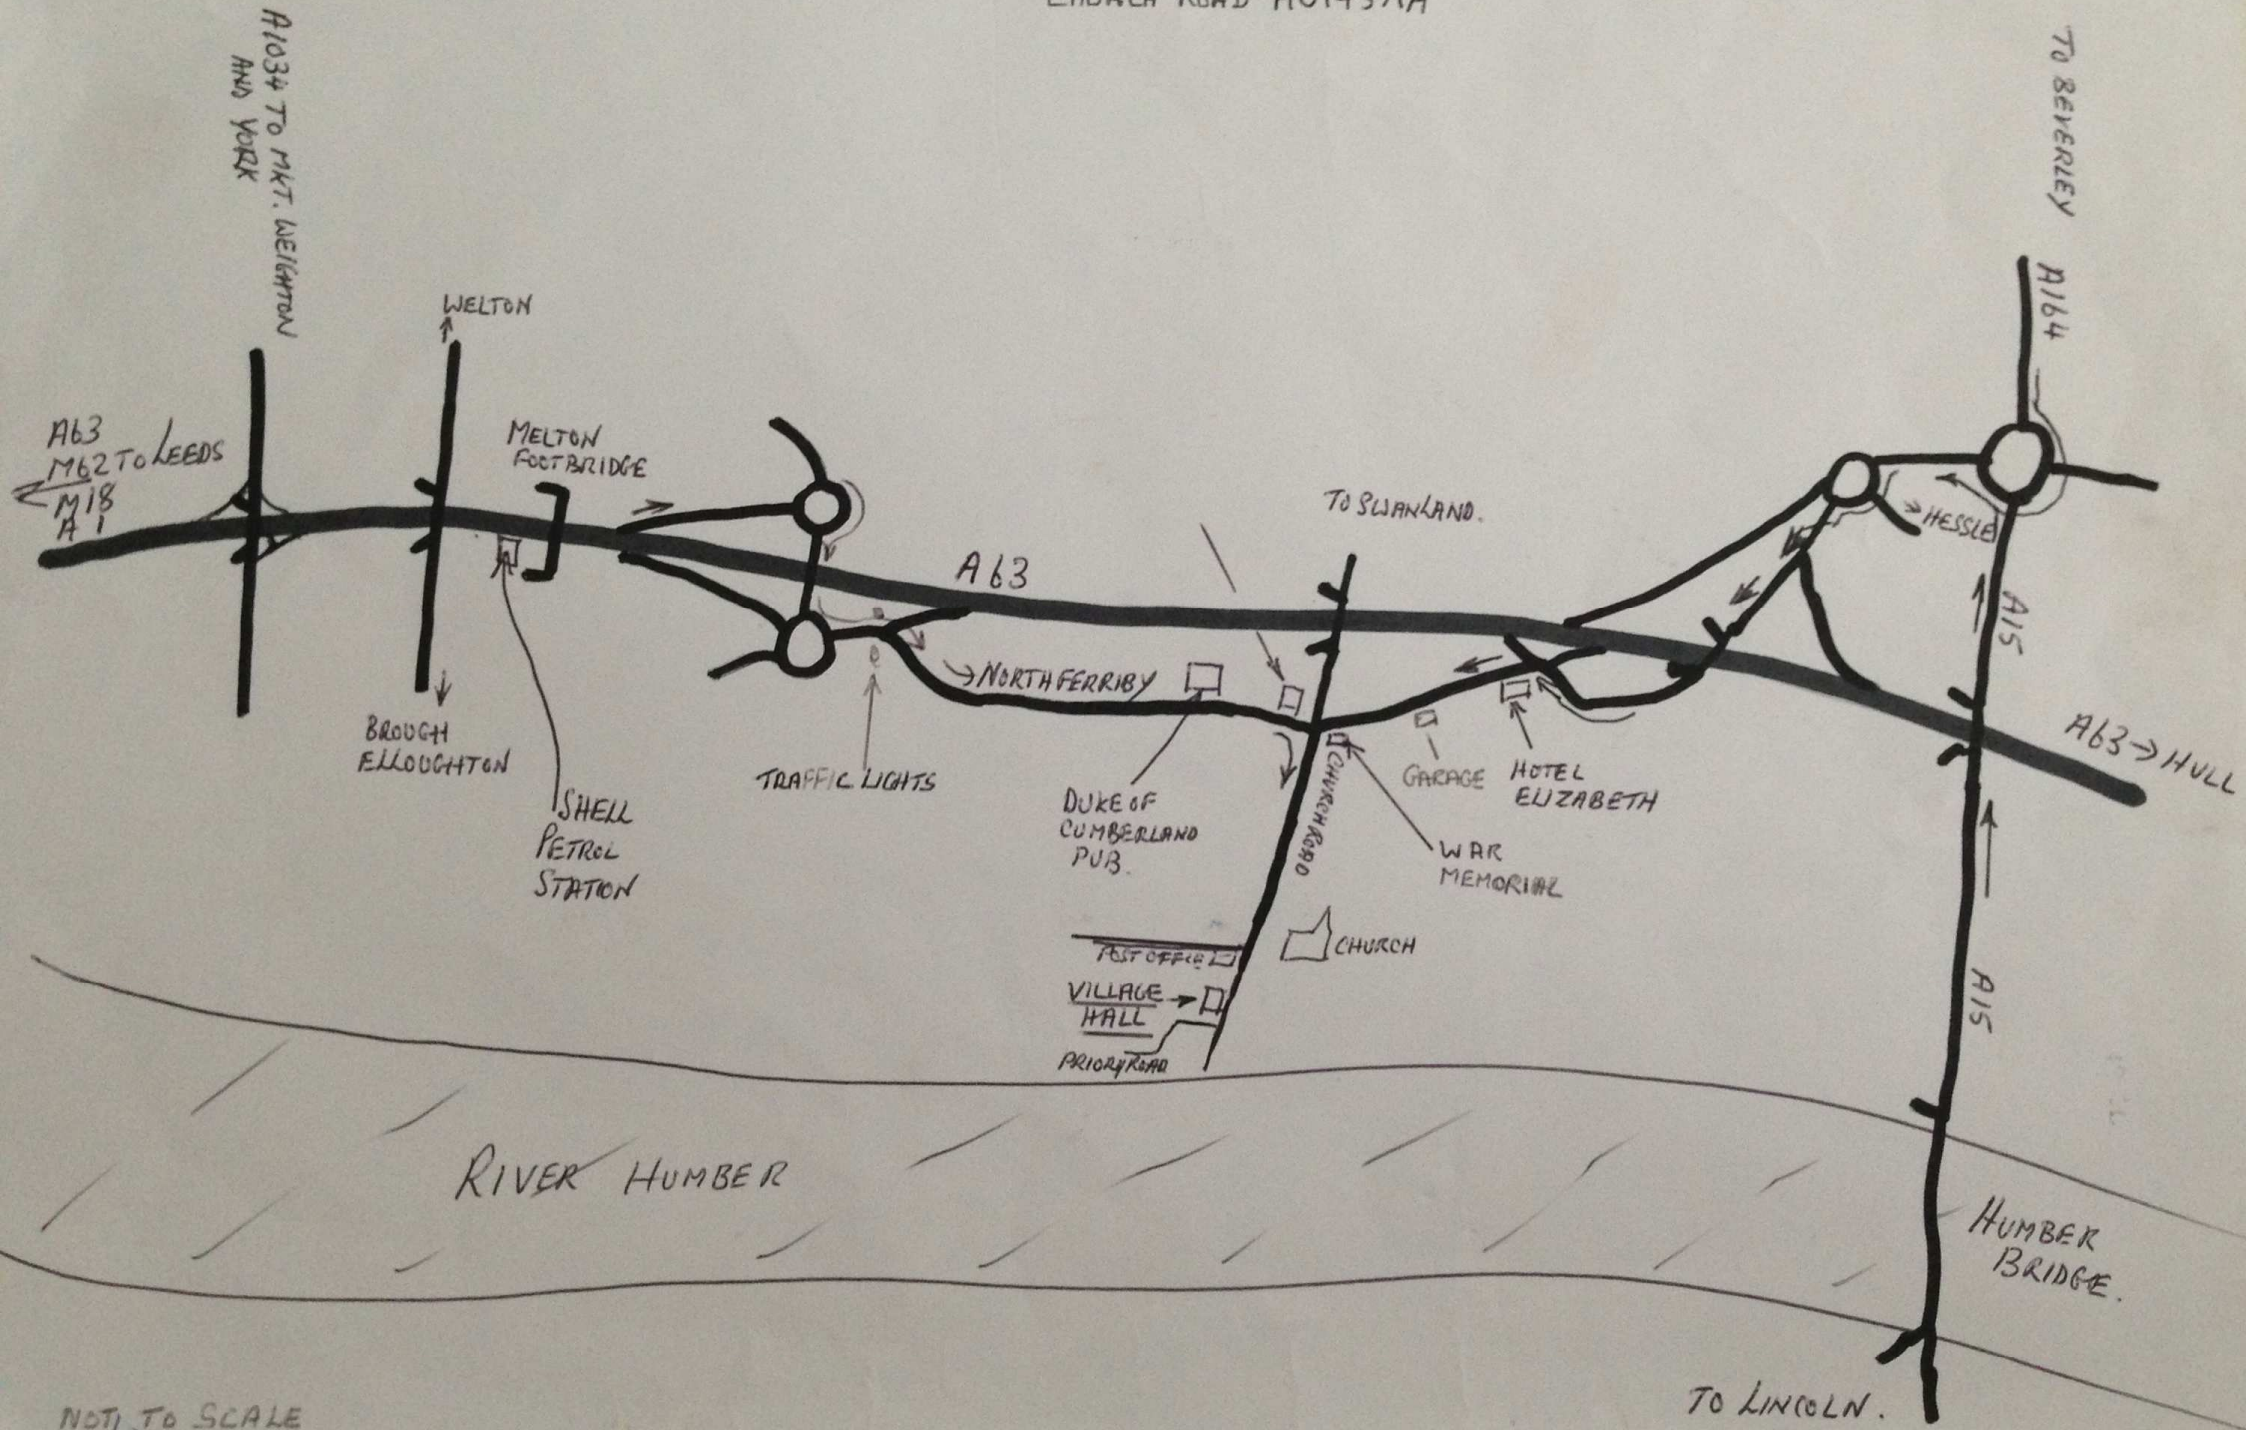 ROAD HU14
A1034 TO MKT. WEIGHTON
AND YORK
TO BEVERLEY
A164
WELTON
A63
M62 TO LEEDS
M18
A1
MELTON
FOOTBRIDGE
A63
TO SWANLAND.
HESSLE
A15
NORTH FERRIBY
A63 → HULL
BROUGH
ELLOUGHTON
TRAFFIC LIGHTS
SHELL
PETROL
STATION
DUKE OF
CUMBERLAND
PUB.
CHURCH ROAD
GARAGE
HOTEL
ELIZABETH
WAR
MEMORIAL
POST OFFICE
CHURCH
VILLAGE
HALL
PRIORY ROAD
A15
RIVER HUMBER
HUMBER
BRIDGE.
TO LINCOLN.
NOT TO SCALE